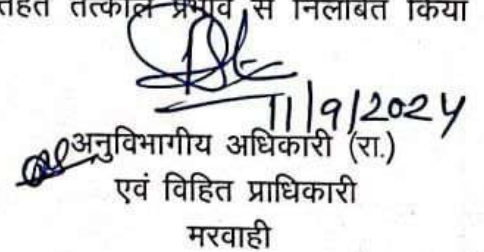 तहत तत्काल प्रभाव से निलंबित किया
11/9/2024
अनुविभागीय अधिकारी (रा.)
एवं विहित प्राधिकारी
मरवाही